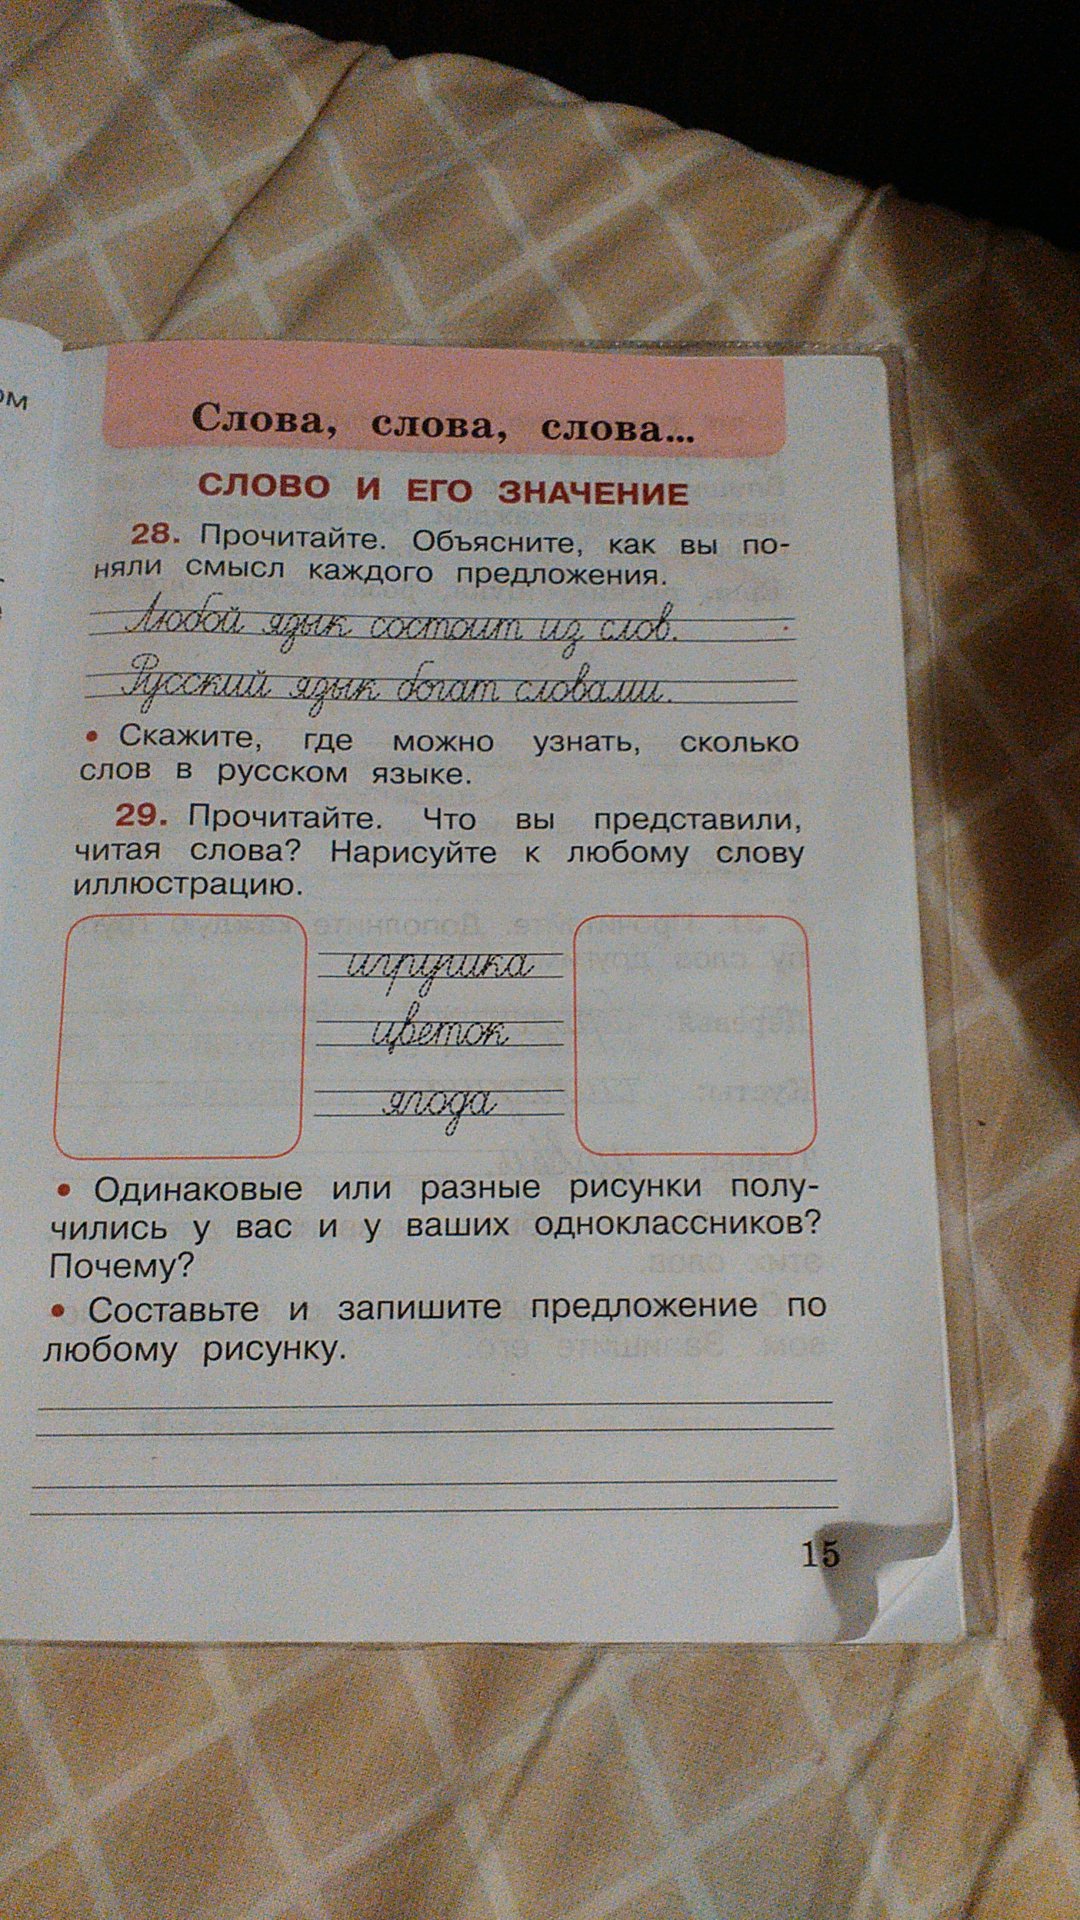 ом
Слова, слова, слова...
СЛОВО И ЕГО ЗНАЧЕНИЕ
28. Прочитайте. Объясните, как вы по-
няли смысл каждого предложения.
Любой язык состоит из слов.
Русский язык богат словами.
• Скажите, где можно узнать, сколько
слов в русском языке.
29. Прочитайте. Что вы представили,
читая слова? Нарисуйте к любому слову
иллюстрацию.
игрушка
цветок
ягода
• Одинаковые или разные рисунки полу-
чились у вас и у ваших одноклассников?
Почему?
• Составьте и запишите предложение по
любому рисунку.
15